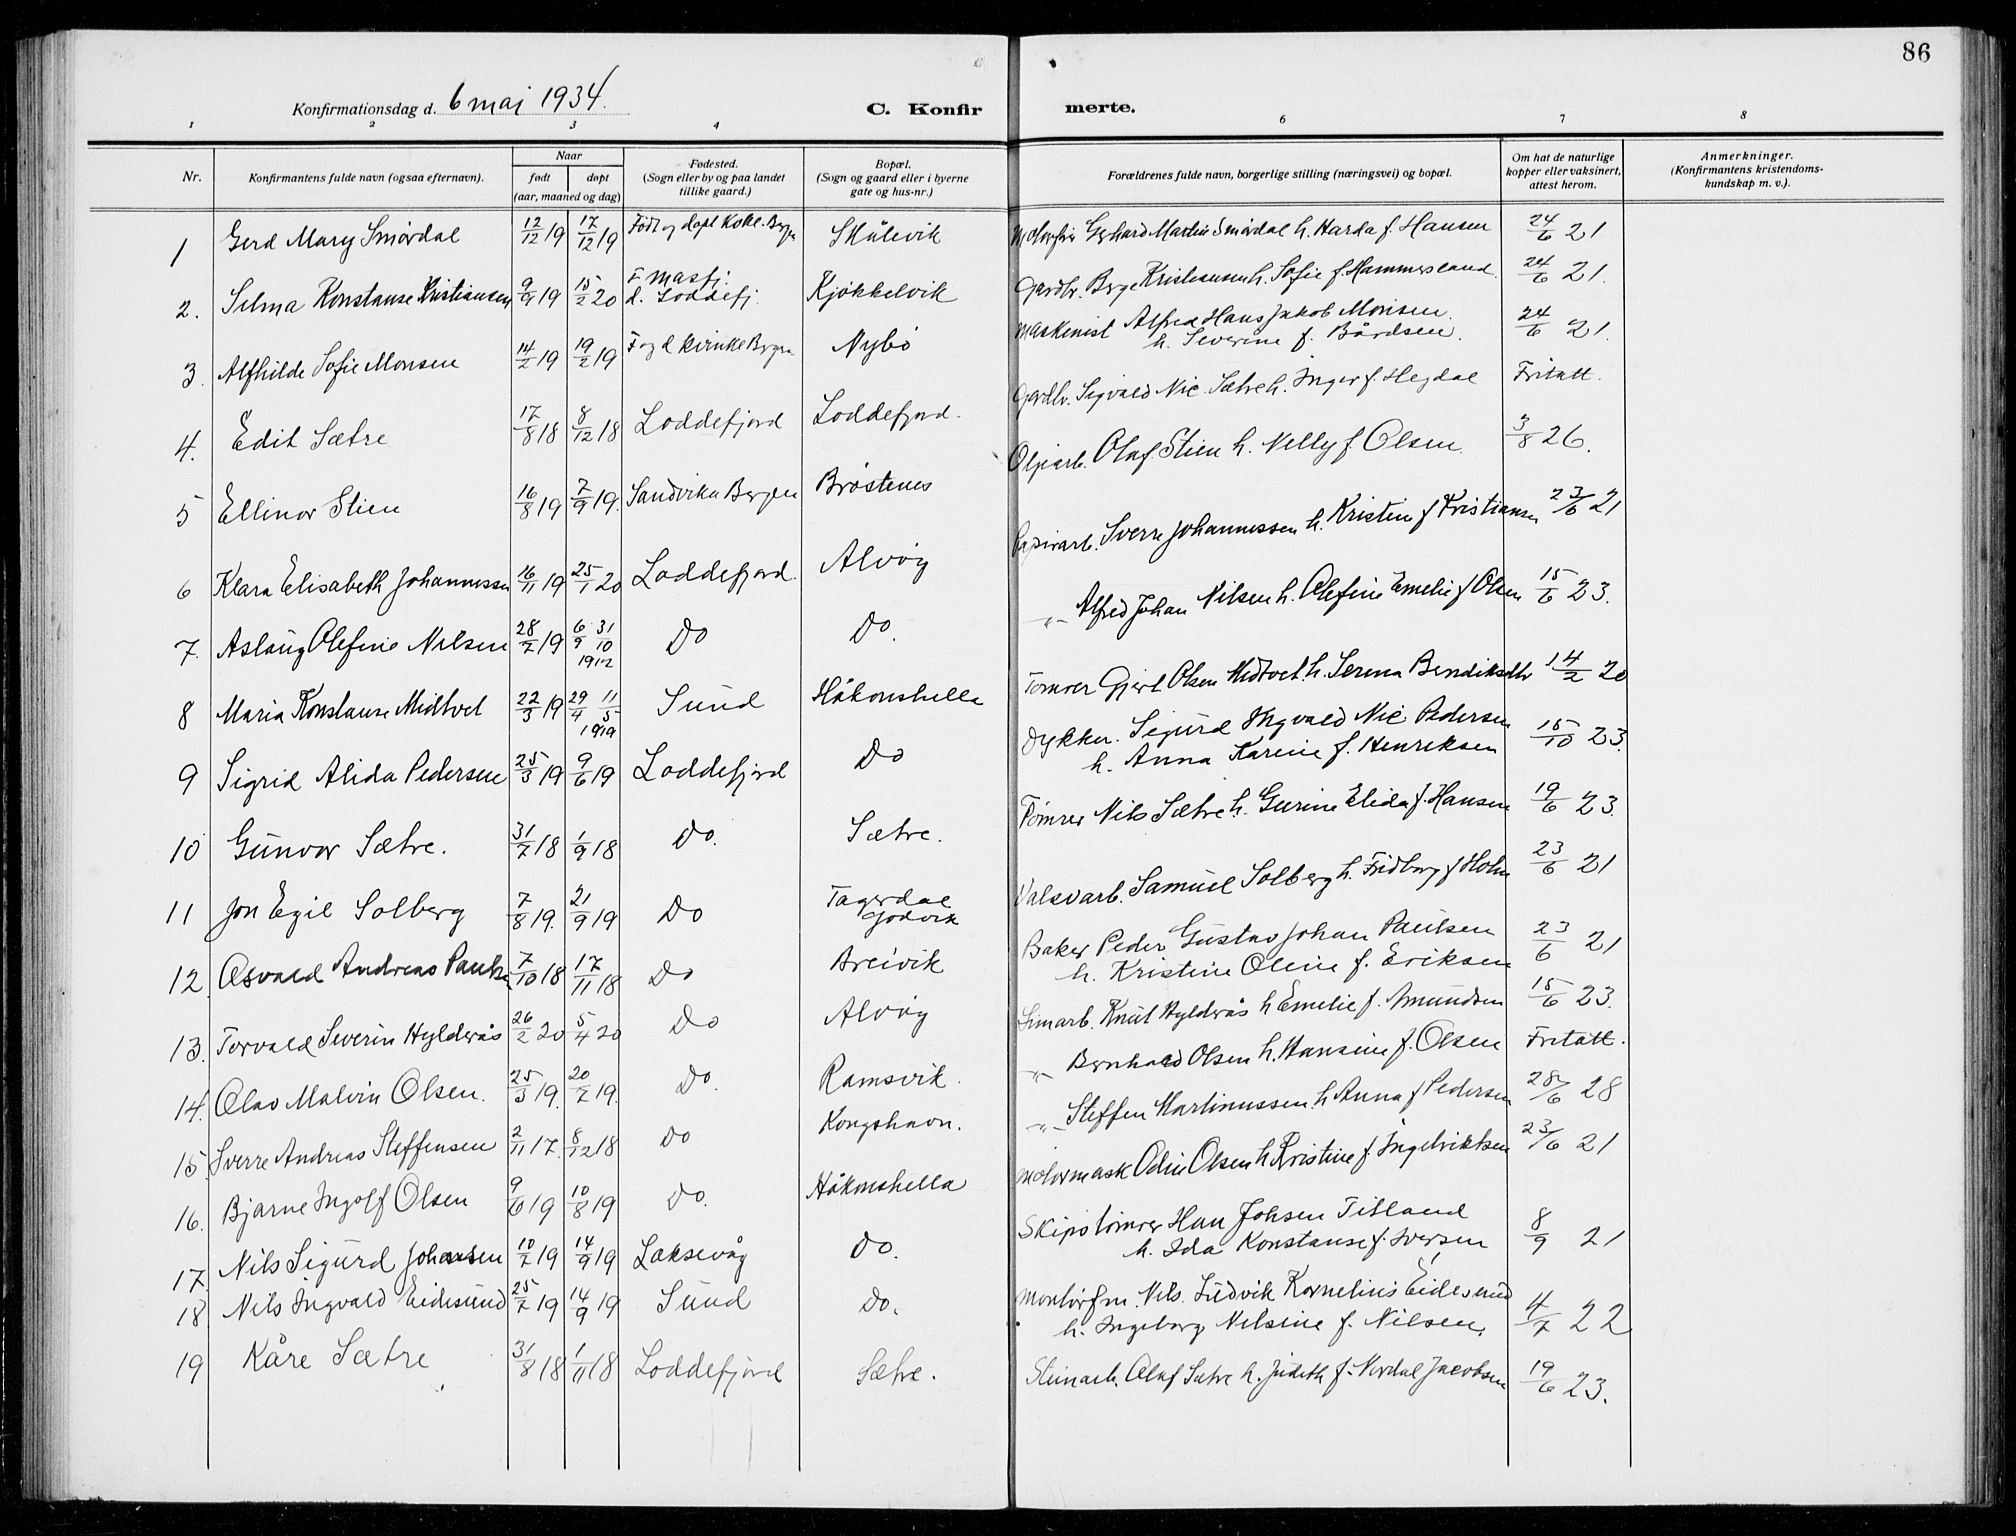 86
Konfirmationsdag d. 6 mai 1934.
C. Konfir merte.
1 2 3 4 6 7 8
Nr.
Konfirmantens fulde navn (ogsaa efternavn).
Naar
født døpt
(aar, maaned og dag)
Fødested.
(Sogn eller by og paa landet
tillike gaard.)
Bopæl.
(Sogn og gaard eller i byerne
gate og hus-nr.)
Forældrenes fulde navn, borgerlige stilling (næringsvei) og bopæl.
Om hat de naturlige
kopper eller vaksinert,
attest herom.
Anmerkninger.
(Konfirmantens kristendoms-
kundskap m. v.).
1 Gerd Mary Smørdal 12/12 19 17/12 19 Født og døpt Skålevik Gerhard Martin Smørdal h. Harda f. Hansen 24/6 21
2. Selma Konstanse Kristiansen 9/9 19 15/2 20 F Masfj. d. Loddefj. Kjøkkelvik Gardbr. Berge Kristiansen h. Sofie f. Hammersland 24/6 21.
3. Alfhilde Sofie Monsen 14/2 19 19/2 19 F og d Nybø Maskinist Alfred Hans Jakob Monsen
h. Severine f. Bårdsen. 24/6 21.
4. Edit Sætre 17/8 18 8/12 18 Loddefjord Loddefjord. Gardbr. Sigvald Nic. Sætre h. Inger f. Hegdal Fritatt.
5 Ellinor Stien 16/8 19 7/9 19. Sandviken Bergen Brøstenes Oljearb. Olaf Stien h. Nelly f Olsen. 3/8 26.
6 Klara Elisabeth Johannessen 16/11 19 25/1 20 Loddefjord. Alvøy Papirarb. Sverre Johannessen h. Kristin f Kristiansen 23/6 21
7. Aslaug Olefine Nilsen 28/7 19 6/9 31/10 Do Do. -"- Alfred Johan Nilsen h. Olefine Emelie f Olsen 15/6 23.
8 Maria Konstanse Midtvet 22/3 19 29/4 11/5 1919 Sund Håkonshella Tømrer Gjert Olsen Midtvet h. Serina Bendiksdtr 14/2 20
9 Sigrid Alida Pedersen 25/3 19 9/6 19 Loddefjord Do Dykker. Sigurd Ingvald Nic Pedersen
h. Anna Karine f. Henriksen 15/10 23.
10 Gunvor Sætre. 31/7 18 1/9 18 Do. Sætre. Tømrer Nils Sætre h. Gurine Elida f. Hansen 19/6 23.
11 Jon Egil Solberg 7/8 19. 21/9 19 Do Tagerdal
Godvik Valsvarb. Samuel Solberg h. Fridborg f Holm 23/6 21
12. Osvald Andreas Paulsen 7/10 18 17/11 18 Do Breivik Baker Peder Gustav Johan Paulsen
h. Kristine Oline f. Eriksen 23/6 21
13. Torvald Severin Hylderås 26/2 20 5/4 20 Do Alvøy Limarb. Knut Hylderås h Emelie f. Amundsen 15/6 23.
14. Olav Malvin Olsen. 25/3 19. 20/7 19. Do. Ramsvik. -"- Bernhard Olsen h. Hansine f. Olsen Fritatt.
15. Sverre Andreas Steffensen 2/11 17. 8/12 18 Do Kongshavn. -"- Steffen Martinussen h Anna f Pedersen 28/6 28
16. Bjarne Ingolf Olsen 9/6 19 10/8 19 Do. Håkonshella Motormask Odin Olsen h Kristine f. Ingebriktsen 23/6 21
17. Nils Sigurd Johansen 10/7 19 14/9 19 Laksevåg Do. Skipstømrer Han Johsen Titland
h. Ida Konstanse f. Iversen 8/9 21
18 Nils Ingvald Eidesund 25/7 19 14/9 19 Sund Do. Montørfm. Nils. Ludvik Kornelius Eidesund
h. Ingeborg Nilsine f. Nilsen. 4/7 22
19 Kåre Sætre 31/8 18 1/11 18 Loddefjord Sætre. Steinarb. Olaf Sætre h. Judith f. Nordal Jacobsen 19/6 23.